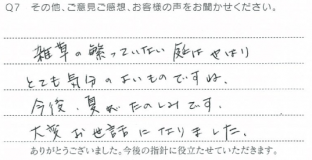 Q7 その他、ご意見ご感想、お客様の声をお聞かせください。
雑草の繁っていない庭はやはり
とても気分のよいものですね。
今後、夏がたのしみです。
大変お世話になりました。
ありがとうございました。今後の指針に役立たせていただきます。